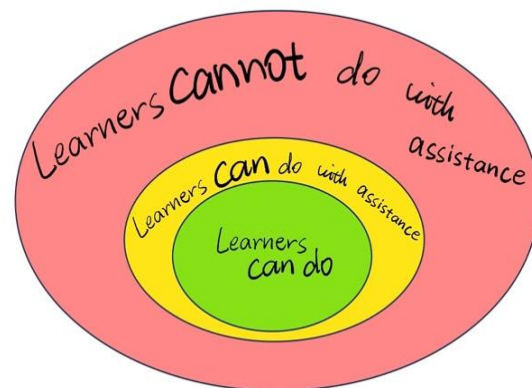 Learners cannot do with assistance
Learners can do with assistance
Learners
can do